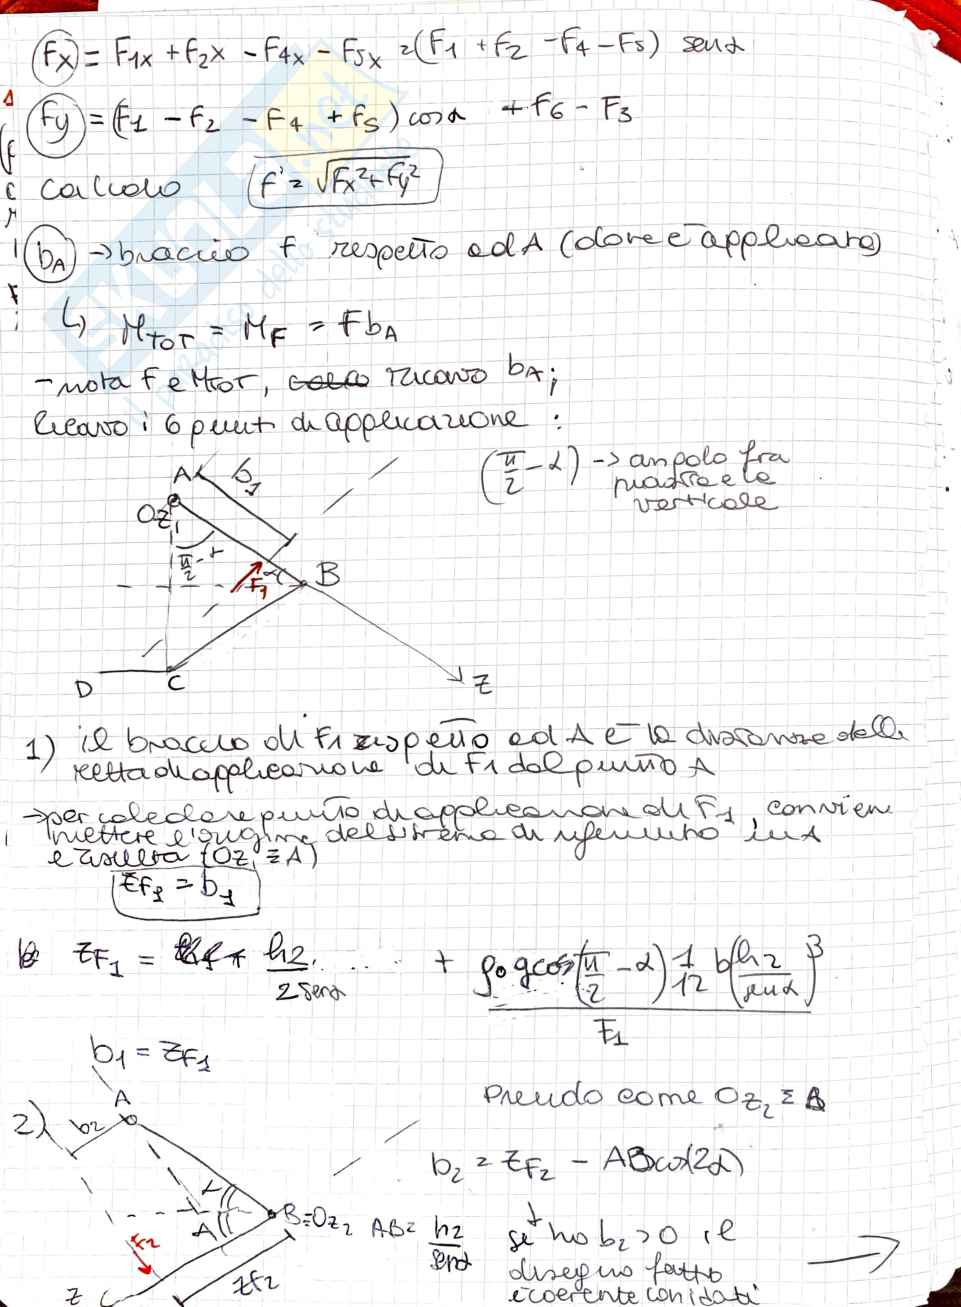 Fx = F1x + F2x - F4x - F5x = (F1 + F2 - F4 - F5) senα
Fy = (F1 - F2 - F4 + F5) cosα + F6 - F3
calcolo F' = √Fx²+Fy²
bA → braccio F rispetto ad A (dove è applicata)
↳ MTOT = MF = F bA
- nota F e MTOT, ricavo bA;
Ricavo i 6 punti di applicazione :
(π/2 - α) → angolo fra
piastra e la
verticale
A b1
Oz1
π/2 - α
F1 α B
D C Z
1) il braccio di F1 rispetto ad A è la distanza della
retta di applicazione di F1 dal punto A
→ per calcolare punto di applicazione di F1, conviene
mettere l'origine del sistema di riferimento in A
e risulta (Oz1 ≡ A)
zF1 = b1
zF1 = h2/2senα + ρ0 g cos(π/2 - α) 1/12 b(h2/senα)³/F1
b1 = zF1
2) A b2
Prendo come Oz2 ≡ B
b2 = zF2 - AB cos(2α)
B≡Oz2 AB = h2/senα
se ho b2 > 0 il
disegno fatto
è coerente con i dati
F2
Z zF2